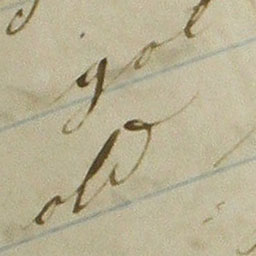 got
old